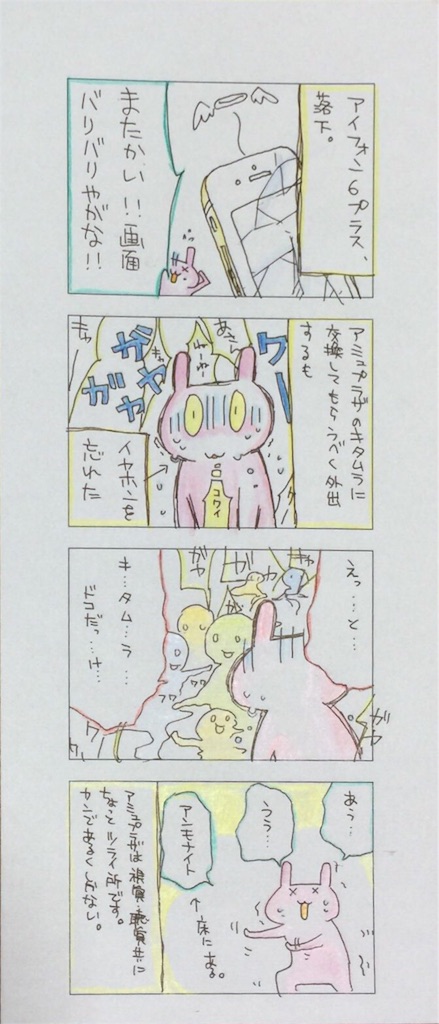 アイフォン6プラス、
落下。
またかい!!画面
バリバリやがな!!
アミュプラザのキタムラに
交換してもらうべく外出
するも
ワー
わーわー
きゃ
ガヤ
ガヤ
ガヤ
イヤホンを
忘れた
コワイ
えっ…と…
キ…タム…ラ…
ドコだっ…け…
ガヤ
ガヤ
ガヤ
ワワ
あう…
うう…
アンモナイト
↑床にある。
アミュプラザは視覚・聴覚共に
ちょっとツライ所です。
カンであるくしかない。